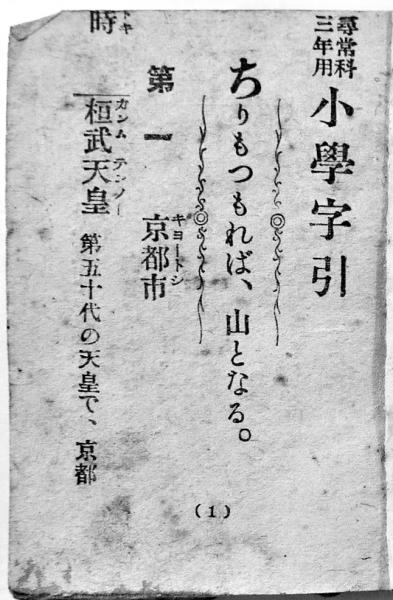 尋常科
三年用
小學字引
ちりもつもれば、山となる。
第一 京都市
キヨートシ
桓武天皇 第五十代の天皇で、京都
カンム テンノー
時
トキ
(1)